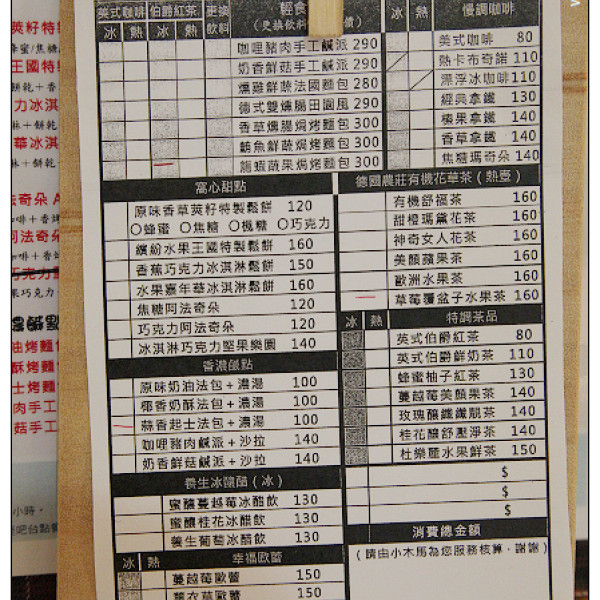 美式咖啡 伯爵紅茶 更換飲料
冰 熱 冰 熱
輕食
咖哩豬肉手工鹹派 290
奶香鮮菇手工鹹派 290
燻雞鮮蔬法國麵包 280
德式雙燻腸田園風 290
香草燻腸焗烤麵包 300
鮪魚鮮蔬焗烤麵包 300
龍蝦蔬果焗烤麵包 300
窩心甜點
原味香草莢籽特製鬆餅 120
○蜂蜜 ○焦糖 ○楓糖 ○巧克力
繽紛水果王國特製鬆餅 160
香蕉巧克力冰淇淋鬆餅 150
水果嘉年華冰淇淋鬆餅 160
焦糖阿法奇朵 120
巧克力阿法奇朵 120
冰淇淋巧克力堅果樂園 140
香濃鹹點
原味奶油法包+濃湯 100
椰香奶酥法包+濃湯 100
蒜香起士法包+濃湯 100
咖哩豬肉鹹派+沙拉 140
奶香鮮菇鹹派+沙拉 140
養生冰釀醋(冰)
蜜釀蔓越莓冰醋飲 130
蜜釀桂花冰醋飲 130
養生葡萄冰醋飲 130
冰 熱 幸福歐蕾
蔓越莓歐蕾 150
薰衣草歐蕾 150
冰 熱 慢調咖啡
美式咖啡 80
熱卡布奇諾 110
漂浮冰咖啡 110
經典拿鐵 130
榛果拿鐵 140
香草拿鐵 140
焦糖瑪奇朵 140
德國農莊有機花草茶(熱壺)
有機舒福茶 160
甜橙瑪黛花茶 160
神奇女人花茶 160
美顏蘋果茶 160
歐洲水果茶 160
草莓覆盆子水果茶 160
冰 熱 特調茶品
英式伯爵紅茶 80
英式伯爵鮮奶茶 110
蜂蜜柚子紅茶 130
蔓越莓美顏果茶 140
玫瑰釀纖纖靚茶 140
桂花釀舒壓淨茶 140
杜樂麗水果鮮茶 150
$
$
$
消費總金額
(請由小木馬為您服務核算,謝謝)